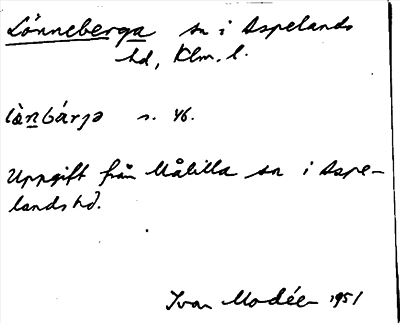 Lönneberga sn i Aspelands
hd, Klm. l.
s. 46.
Uppgift från Målilla sn i Aspe-
lands hd.
Ivar Modéer 1951